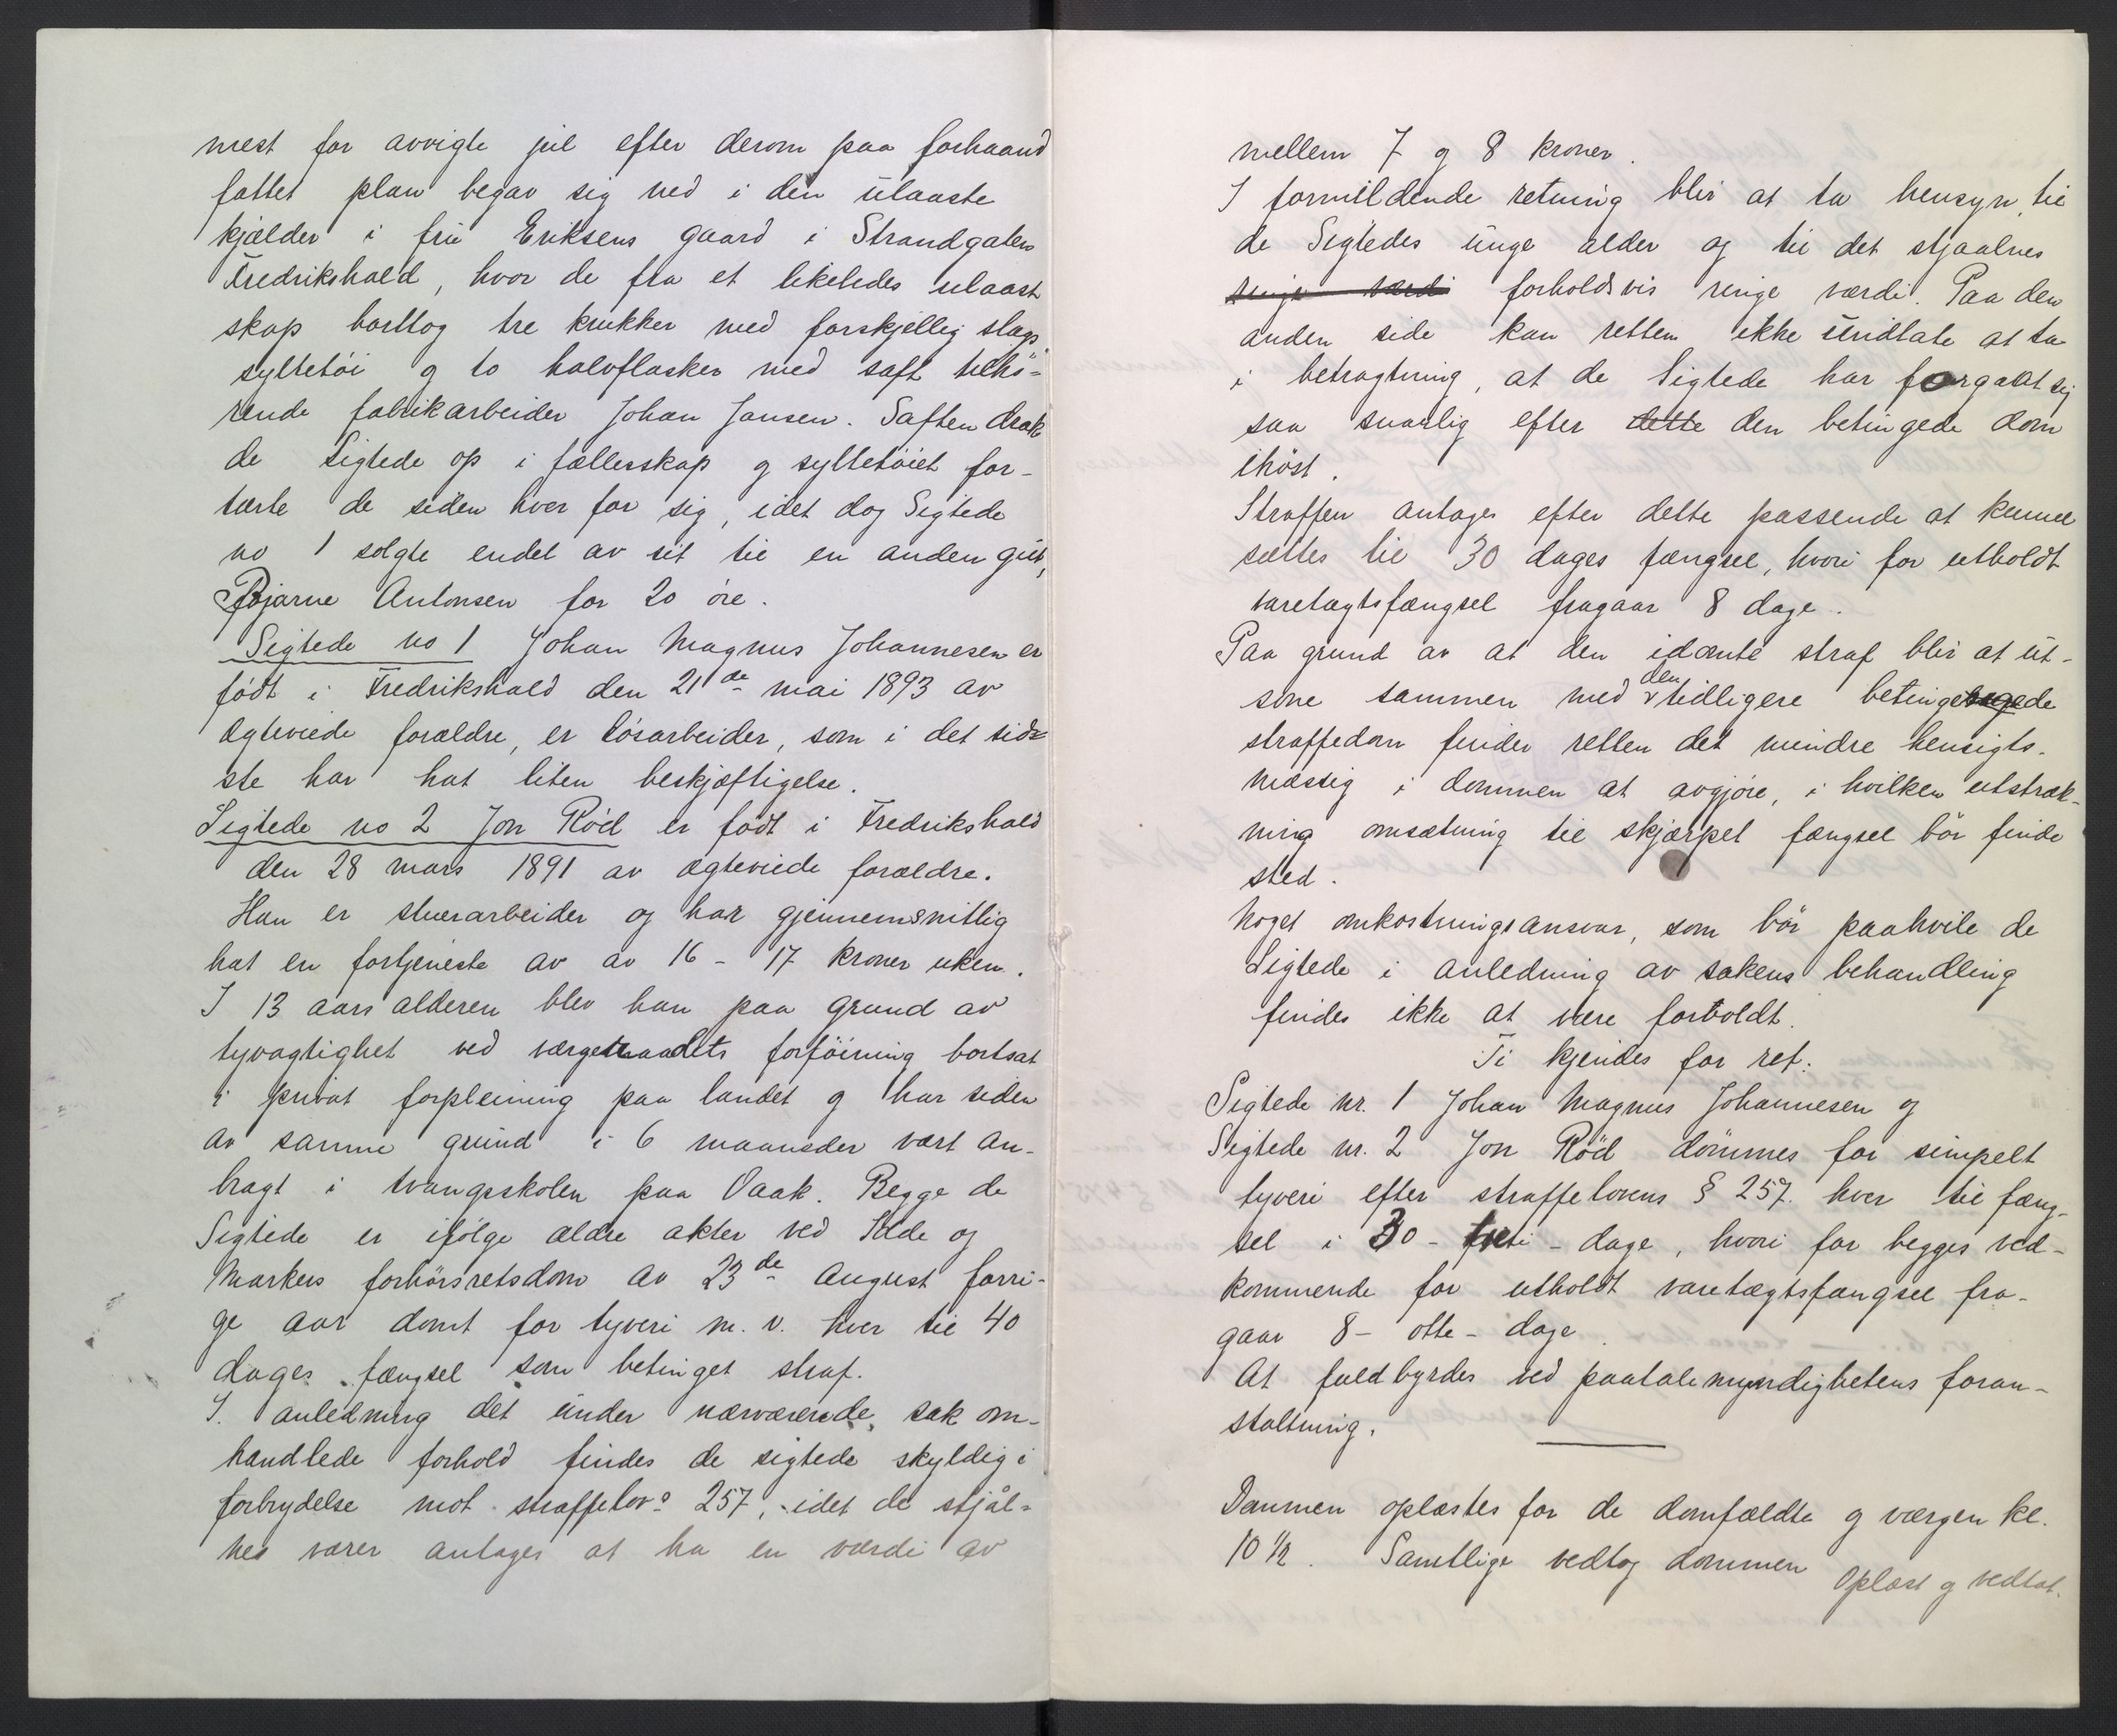 mest for avvigte jul efter derom paa forhaand
fattet plan begav sig ned i den ulaaste
kjælder i fru Eriksens gaard i Strandgaten
Fredrikshald, hvor de fra et likeledes ulaast
skap borttog tre krukker med forskjellig slags
syltetöi og to halvflasker med saft tilhö-
rende fabrikarbeider Johan Jansen. Saften drak
de Sigtede op i fællesskap og syltetöiet for-
tærte de siden hver for sig, idet dog Sigtede
no 1 solgte endel av sit til en anden gut,
Bjarne Antonsen for 20 öre.
Sigtede no 1 Johan Magnus Johannesen er
födt i Fredrikshald den 21de mai 1893 av
ægteviede forældre, er lösarbeider, som i det sids-
ste har hat liten beskjæftigelse.
Sigtede no 2 Jon Röd er födt i Fredrikshald
den 28 mars 1891 av ægteviede forældre.
Han er stuerarbeider og har gjennemsnitlig
hat en fortjeneste av av 16 - 17 kroner uken.
I 13 aars alderen blev han paa grund av
tyvagtighet ved værgeraadets forföining bortsat
i privat forpleining paa landet og har siden
av samme grund i 6 maaneder vært an-
bragt i tvangsskolen paa Vaak. Begge de
Sigtede er ifölge ældre akter ved Idde og
Markers forhörsretsdom av 23de August forri-
ge aar dömt for tyveri m. v. hver til 40
dages fængsel som betinget straf.
I anledning det under nærværende sak om-
handlede forhold findes de sigtede skyldig i
forbrydelse mot straffelovs 257, idet de stjål-
nes varer antages at ha en værdi av
mellem 7 og 8 kroner.
I formildende retning blir at ta hensyn til
de Sigtedes unge alder og til det stjaalnes
ringe værdi forholdsvis ringe værdi. Paa den
anden side kan retten ikke undlate at ta
i betragtning, at de Sigtede har forgaat sig
saa snarlig efter dette den betingede dom
ihöst.
Straffen antages efter dette passende at kunne
sættes til 30 dages fængsel, hvori for utholdt
varetægtsfængsel fragaar 8 dage.
Paa grund av at den idömte straf blir at ut-
sone sammen med den tidligere betingede
straffedom finder retten det mindre hensigts-
mæssig i dommen at avgjöre, i hvilken utstræk-
ning omsætning til skjærpet fængsel bör finde
sted.
Noget omkostningsansvar, som bör paahvile de
Sigtede i anledning av sakens behandling
findes ikke at være forvoldt.
Ti kjendes for ret:
Sigtede nr. 1 Johan Magnus Johannesen og
Sigtede nr. 2 Jon Röd dömmes for simpelt
tyveri efter straffelovens § 257 hver til fæng-
sel i 30 - treti - dage, hvori for begges ved-
kommende for utholdt varetægtsfængsel fra-
gaar 8 - otte - dage.
At fuldbyrdes ved paatalemyndighetens foran-
staltning.
Dommen oplæstes for de domfældte og værgen kl.
10 1/2. Samtlige vedtog dommen Oplæst og vedtat.